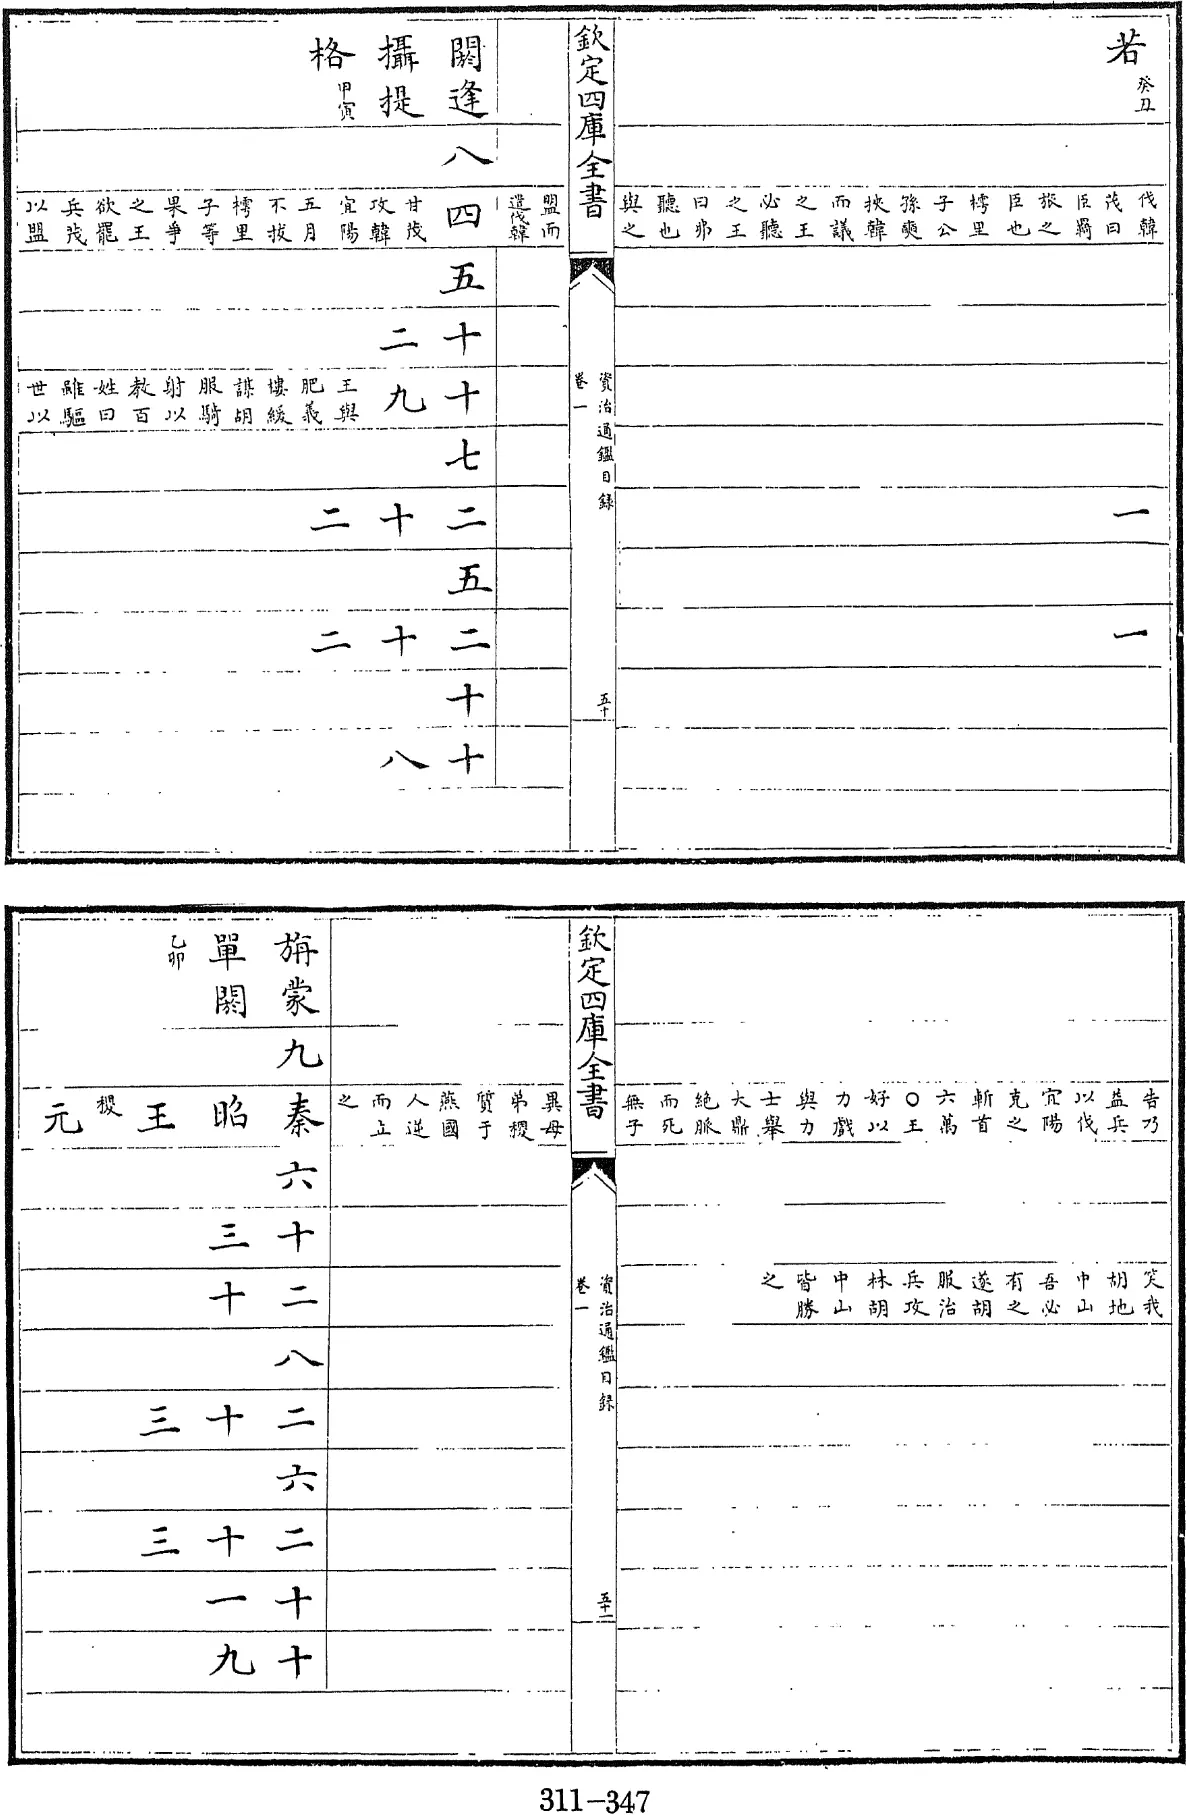 若癸丑
伐韓茂曰臣羇旅之臣也樗里子公孫奭挾韓而議之王必聽之王曰弗聽也與之
一
一
欽定四庫全書
資治通鑑目錄
卷一
五十
盟而遣伐韓
閼逢攝提格甲寅
八
四甘茂攻韓宜陽五月不拔樗里子等果爭之王欲罷兵茂以盟
五
十二
十九王與肥義樓緩謀胡服騎射以教百姓曰雖驅世以
七
二十二
五
二十二
十
十八
告乃益兵以伐宜陽克之斬首六萬○王好以力戲與力士舉大鼎絕脈而死無子
笑我胡地中山吾必有之遂胡服治兵攻林胡中山皆勝之
欽定四庫全書
資治通鑑目錄
卷一
五十一
異母弟稷質于燕國人逆而立之
旃蒙單閼乙卯
九
秦昭王稷元
六
十三
二十
八
二十三
六
二十三
十一
十九
311-347